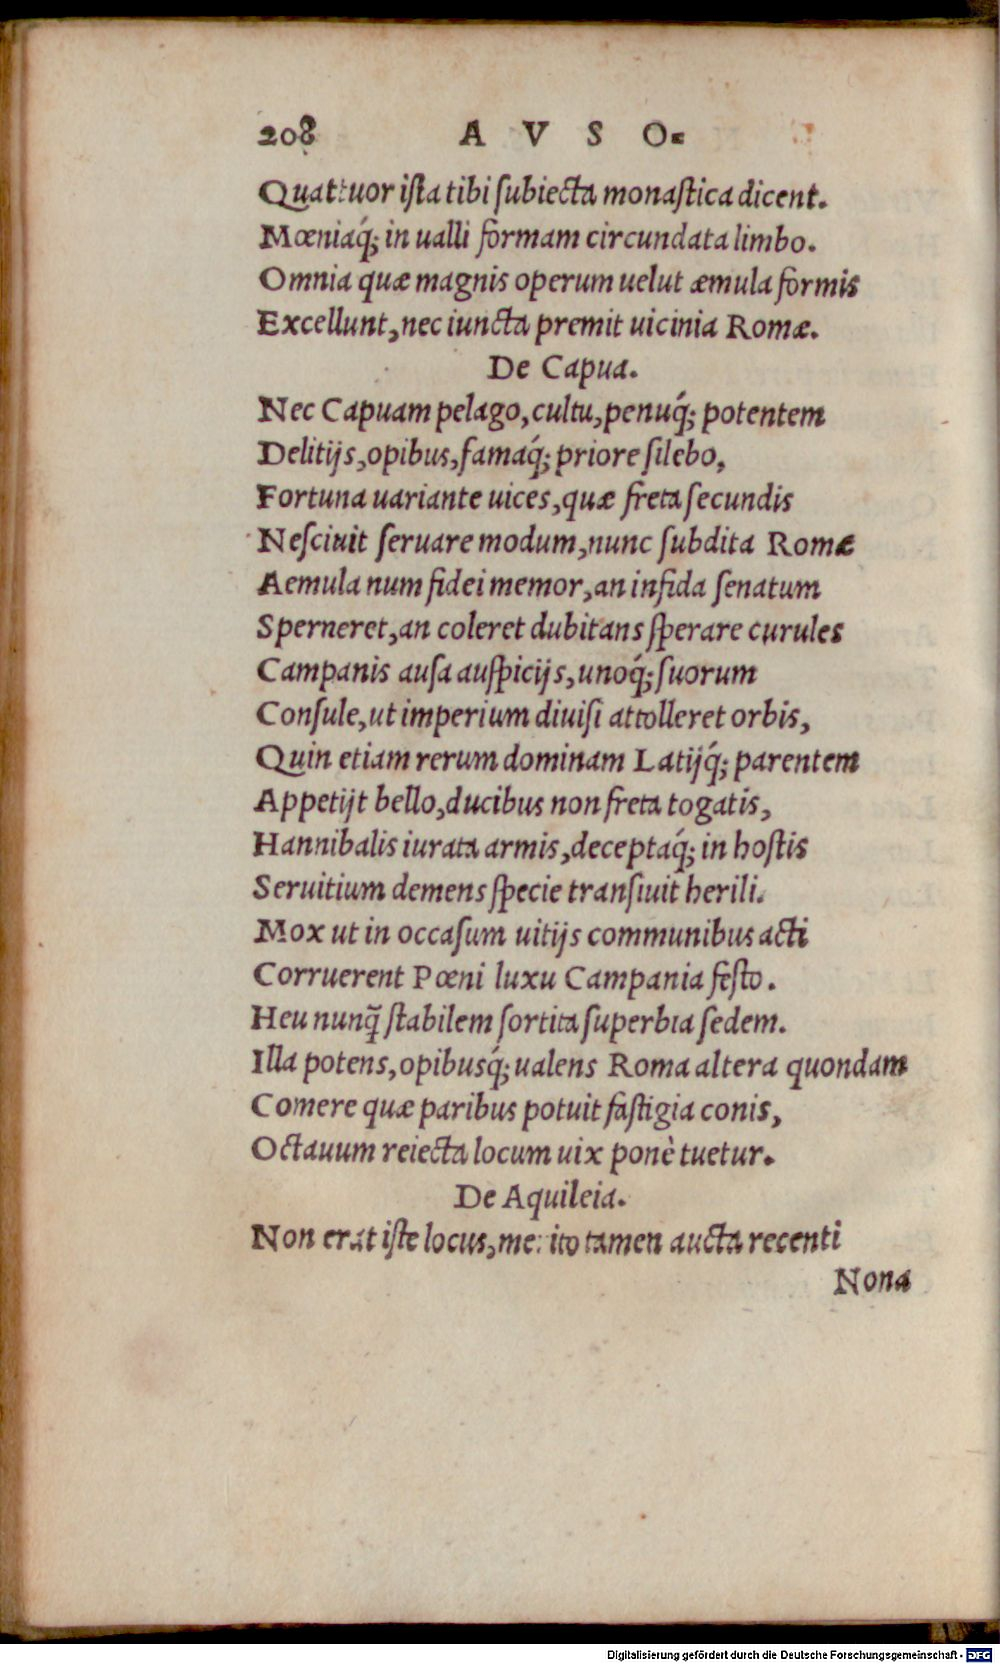 208 A V S O=
Quattuor iſta tibi ſubiecta monaſtica dicent.
Mœniaq́; in ualli formam circundata limbo.
Omnia quæ magnis operum uelut æmula formis
Excellunt, nec iuncta premit uicinia Romæ.
De Capua.
Nec Capuam pelago, cultu, penuq́; potentem
Delitijs, opibus, famaq́; priore ſilebo,
Fortuna uariante uices, quæ freta ſecundis
Neſciuit ſeruare modum, nunc ſubdita Romæ
Aemula num fidei memor, an infida ſenatum
Sperneret, an coleret dubitans ſperare curules
Campanis auſa auſpicijs, unoq́; ſuorum
Conſule, ut imperium diuiſi attolleret orbis,
Quin etiam rerum dominam Latijq́; parentem
Appetijt bello, ducibus non freta togatis,
Hannibalis iurata armis, deceptaq́; in hoſtis
Seruitium demens ſpecie tranſiuit herili.
Mox ut in occaſum uitijs communibus acti
Corruerent Pœni luxu Campania feſto.
Heu nunq̃ ſtabilem ſortita ſuperbia ſedem.
Illa potens, opibusq́; ualens Roma altera quondam
Comere quæ paribus potuit faſtigia conis,
Octauum reiecta locum uix ponè tuetur.
De Aquileia.
Non erat iſte locus, merito tamen aucta recenti
Nona
Digitalisierung gefördert durch die Deutsche Forschungsgemeinschaft - DFG